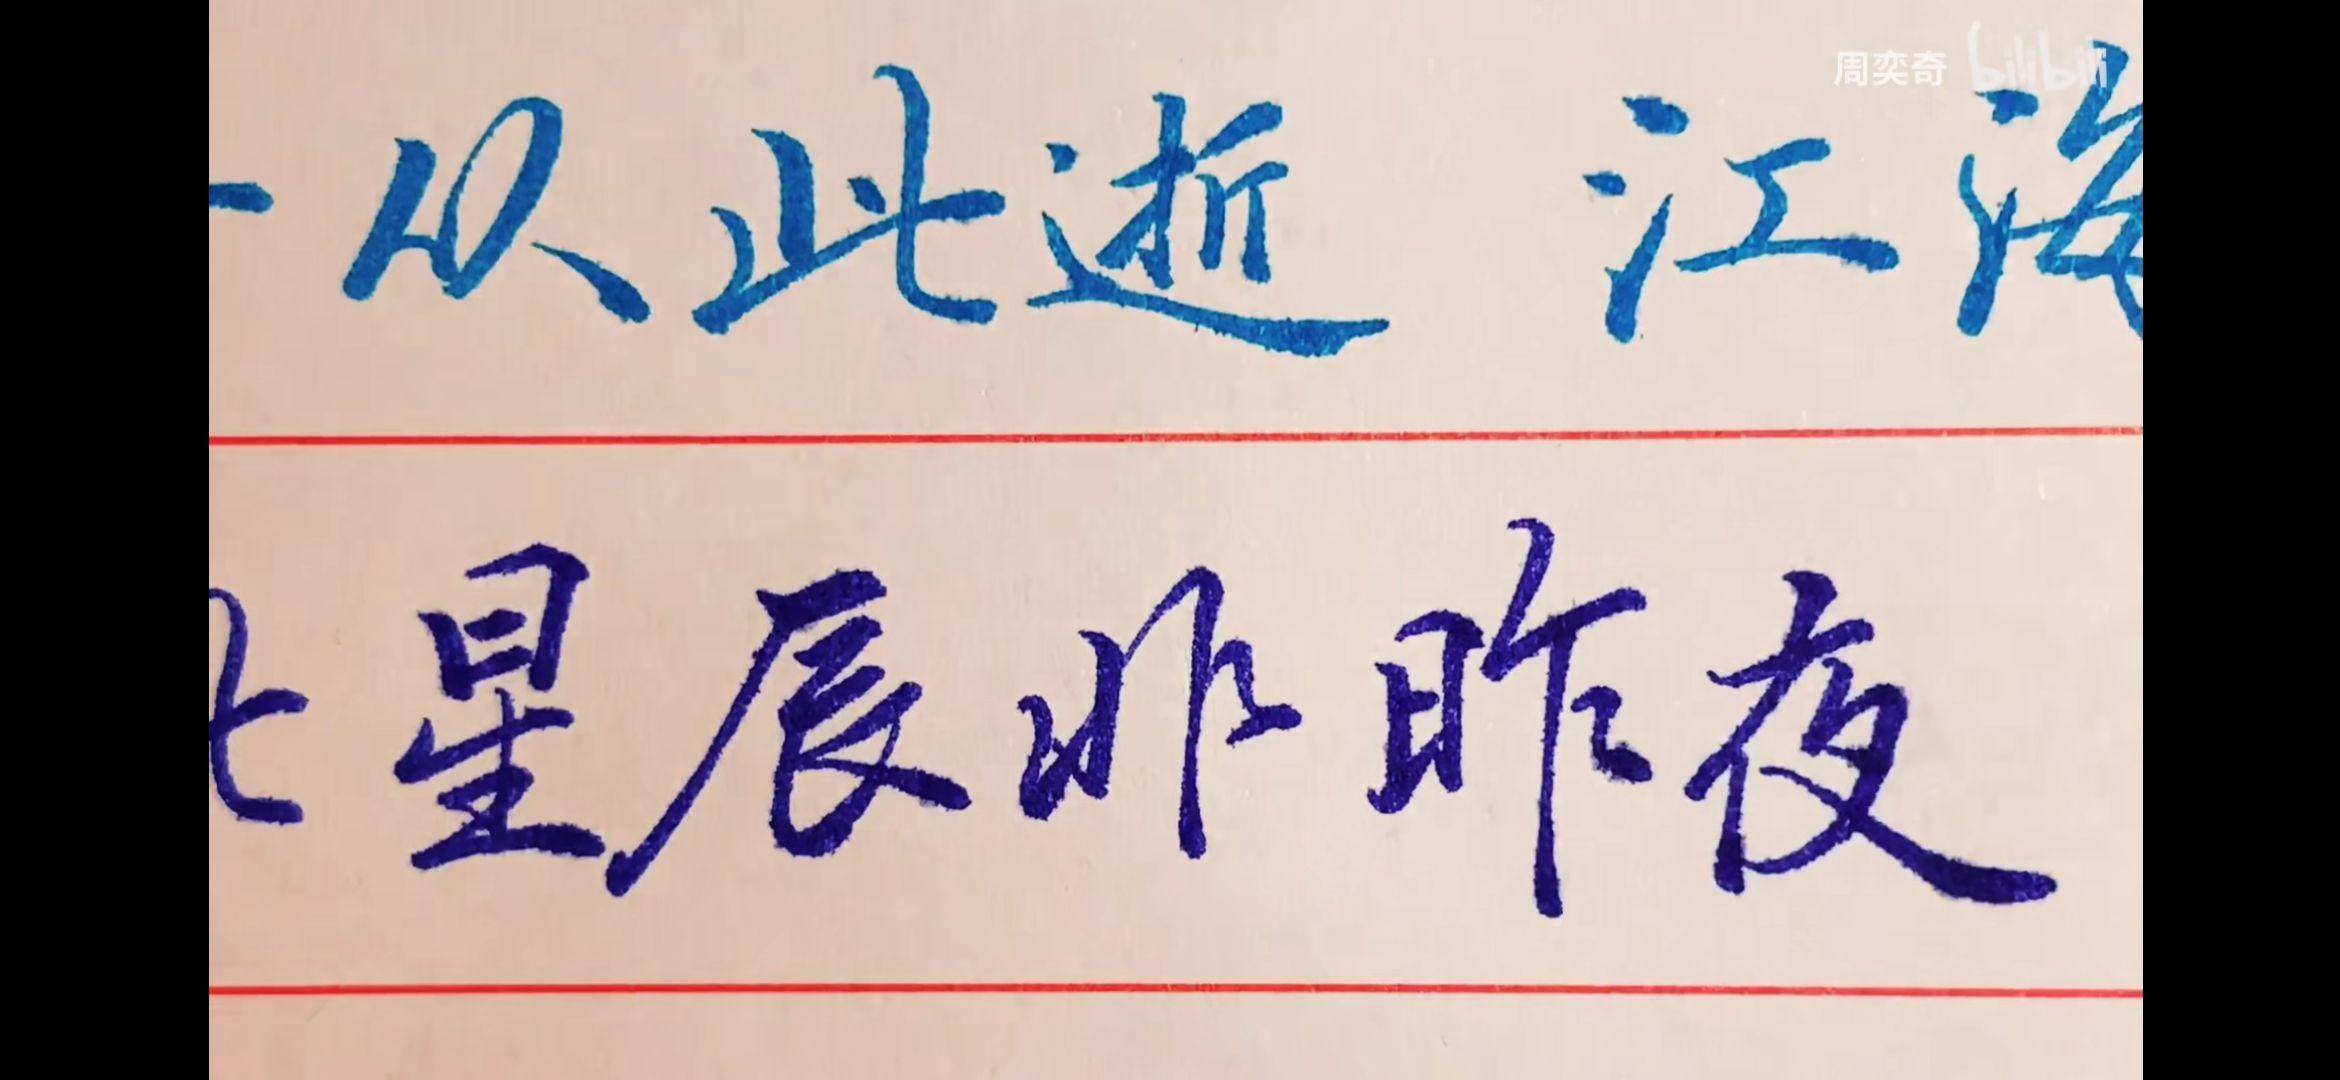 周奕奇 bilibili
以此逝 江海
星辰非昨夜